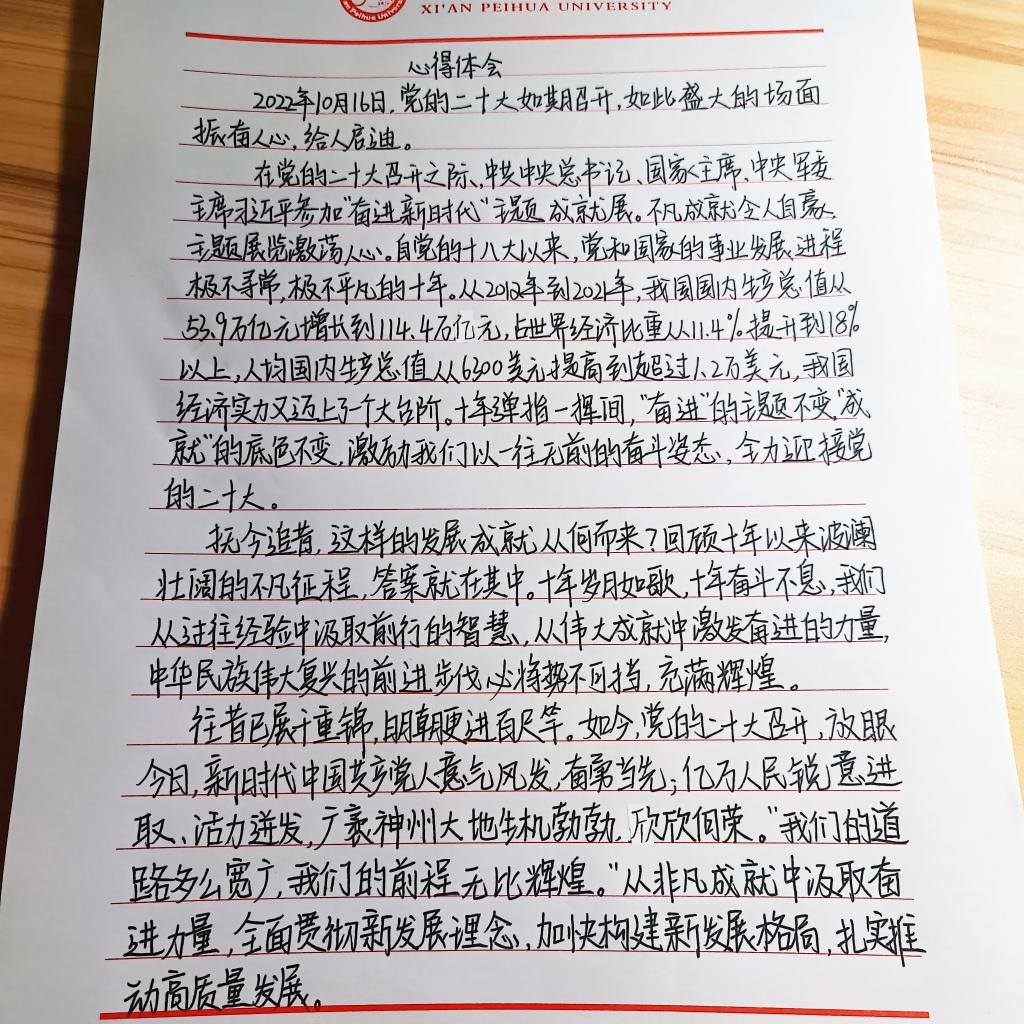 XI'AN PEIHUA UNIVERSITY
心得体会
2022年10月16日,党的二十大如期召开,如此盛大的场面
振奋人心,给人启迪。
在党的二十大召开之际,中共中央总书记、国家主席、中央军委
主席习近平参加“奋进新时代”主题成就展。不凡成就令人自豪,
主题展览激荡人心。自党的十八大以来,党和国家的事业发展进程
极不寻常,极不平凡的十年。从2012年到2021年,我国国内生产总值从
53.9万亿元增长到114.4万亿元,占世界经济比重从11.4%提升到18%
以上,人均国内生产总值从6300美元提高到超过1.2万美元,我国
经济实力又迈上了一个大台阶。十年弹指一挥间,“奋进”的主题不变,“成
就”的底色不变,激励我们以一往无前的奋斗姿态,全力迎接党
的二十大。
抚今追昔,这样的发展成就从何而来?回顾十年以来波澜
壮阔的不凡征程,答案就在其中。十年岁月如歌,十年奋斗不息,我们
从过往经验中汲取前行的智慧,从伟大成就中激发奋进的力量,
中华民族伟大复兴的前进步伐必将势不可挡,充满辉煌。
往昔已展千重锦,明朝更进百尺竿。如今,党的二十大召开,放眼
今日,新时代中国共产党人意气风发,奋勇当先;亿万人民锐意进
取、活力迸发,广袤神州大地生机勃勃,欣欣向荣。“我们的道
路多么宽广,我们的前程无比辉煌。”从非凡成就中汲取奋
进力量,全面贯彻新发展理念,加快构建新发展格局,扎实推
动高质量发展。